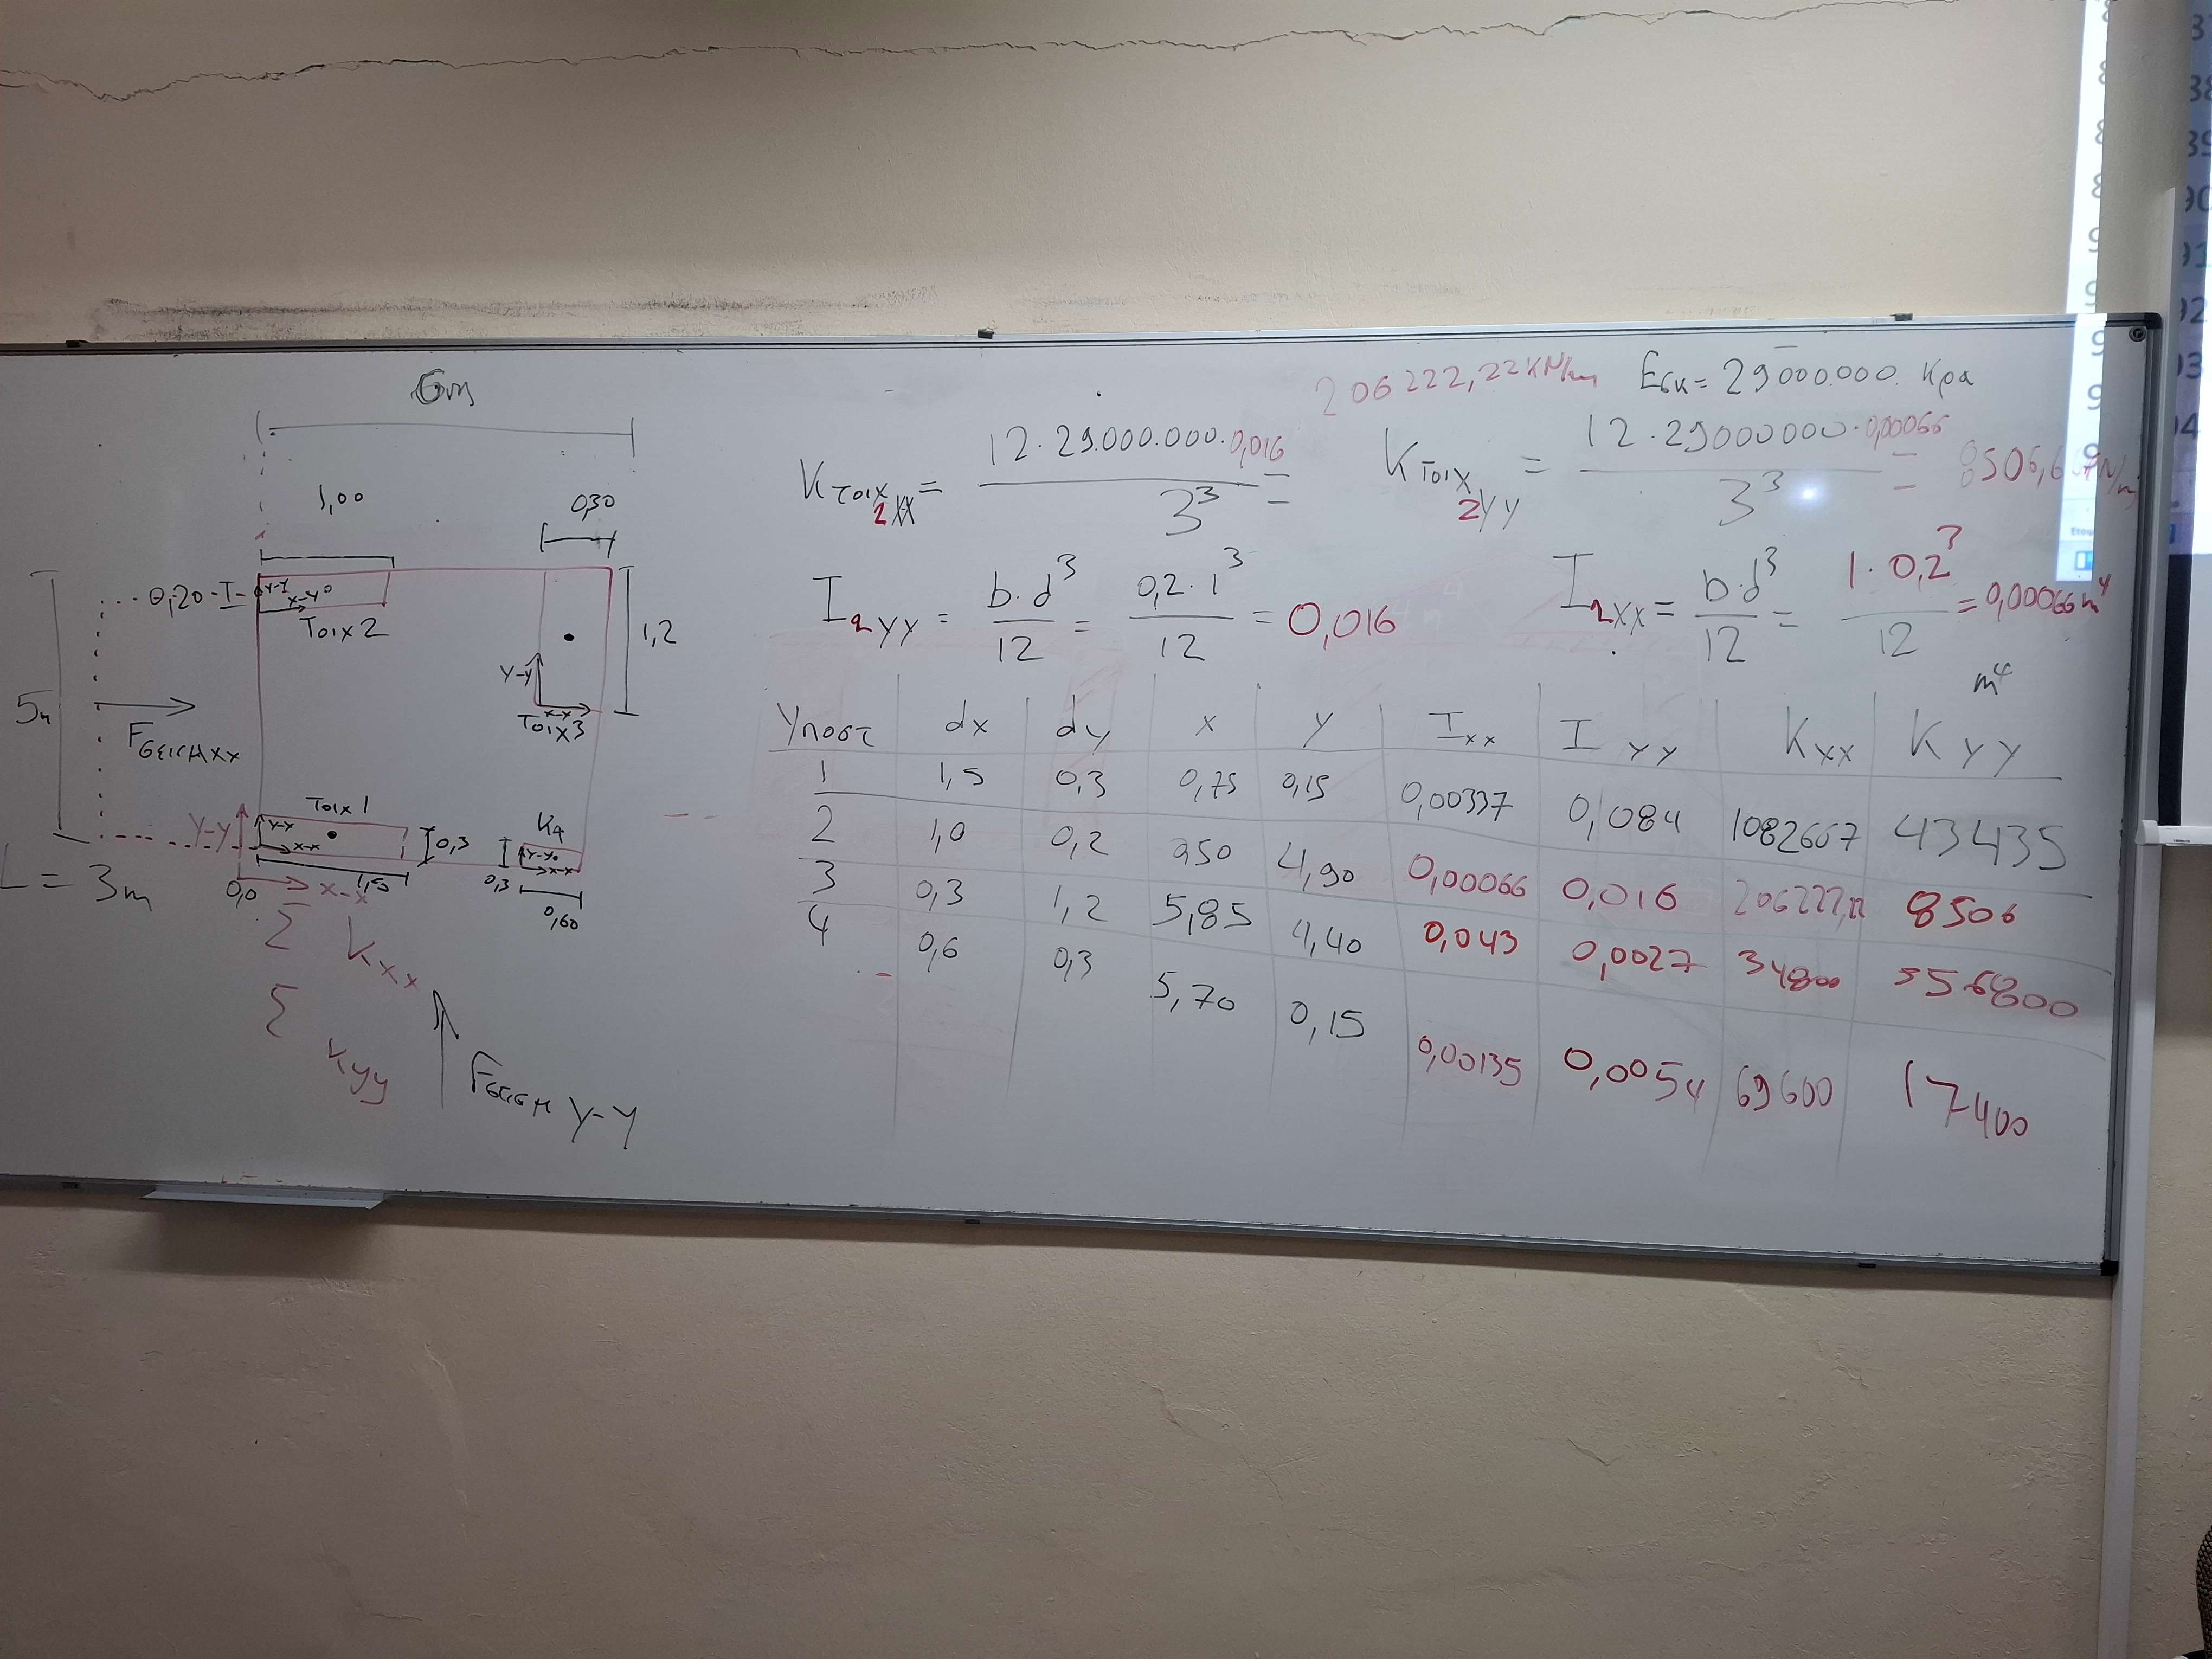 6m
1,00
0,30
0,20
Y-Y
X-Y
Τοιχ 2
1,2
Y-Y
X-X
Τοιχ3
5m
Fσεισμxx
Τοιχ 1
Y-Y
Y-Y
X-X
0,3
K4
Y-Y
X-X
0,3
0,60
1,50
0,0
X-X
L = 3m
Σ Kxx
Σ Kyy
Fσεισμ Y-Y
206222,22 KN/m
Eσκ = 29000.000. Kpa
Kτοιχ 2xx = 12·29.000.000·0,016 / 3³ =
Kτοιχ 2yy = 12·29000000·0,00066 / 3³ = 8506,6 KN/m
I2yy = b·d³/12 = 0,2·1³/12 = 0,016
I2xx = b·d³/12 = 1·0,2³/12 = 0,00066 m⁴
m⁴
Υποστ dx dy x y Ixx Iyy Kxx Kyy
1 1,5 0,3 0,75 0,15 0,00337 0,084 1082667 43435
2 1,0 0,2 0,50 4,90 0,00066 0,016 206222,22 8506
3 0,3 1,2 5,85 4,40 0,043 0,0027 34800 556800
4 0,6 0,3 5,70 0,15 0,00135 0,0054 69600 17400